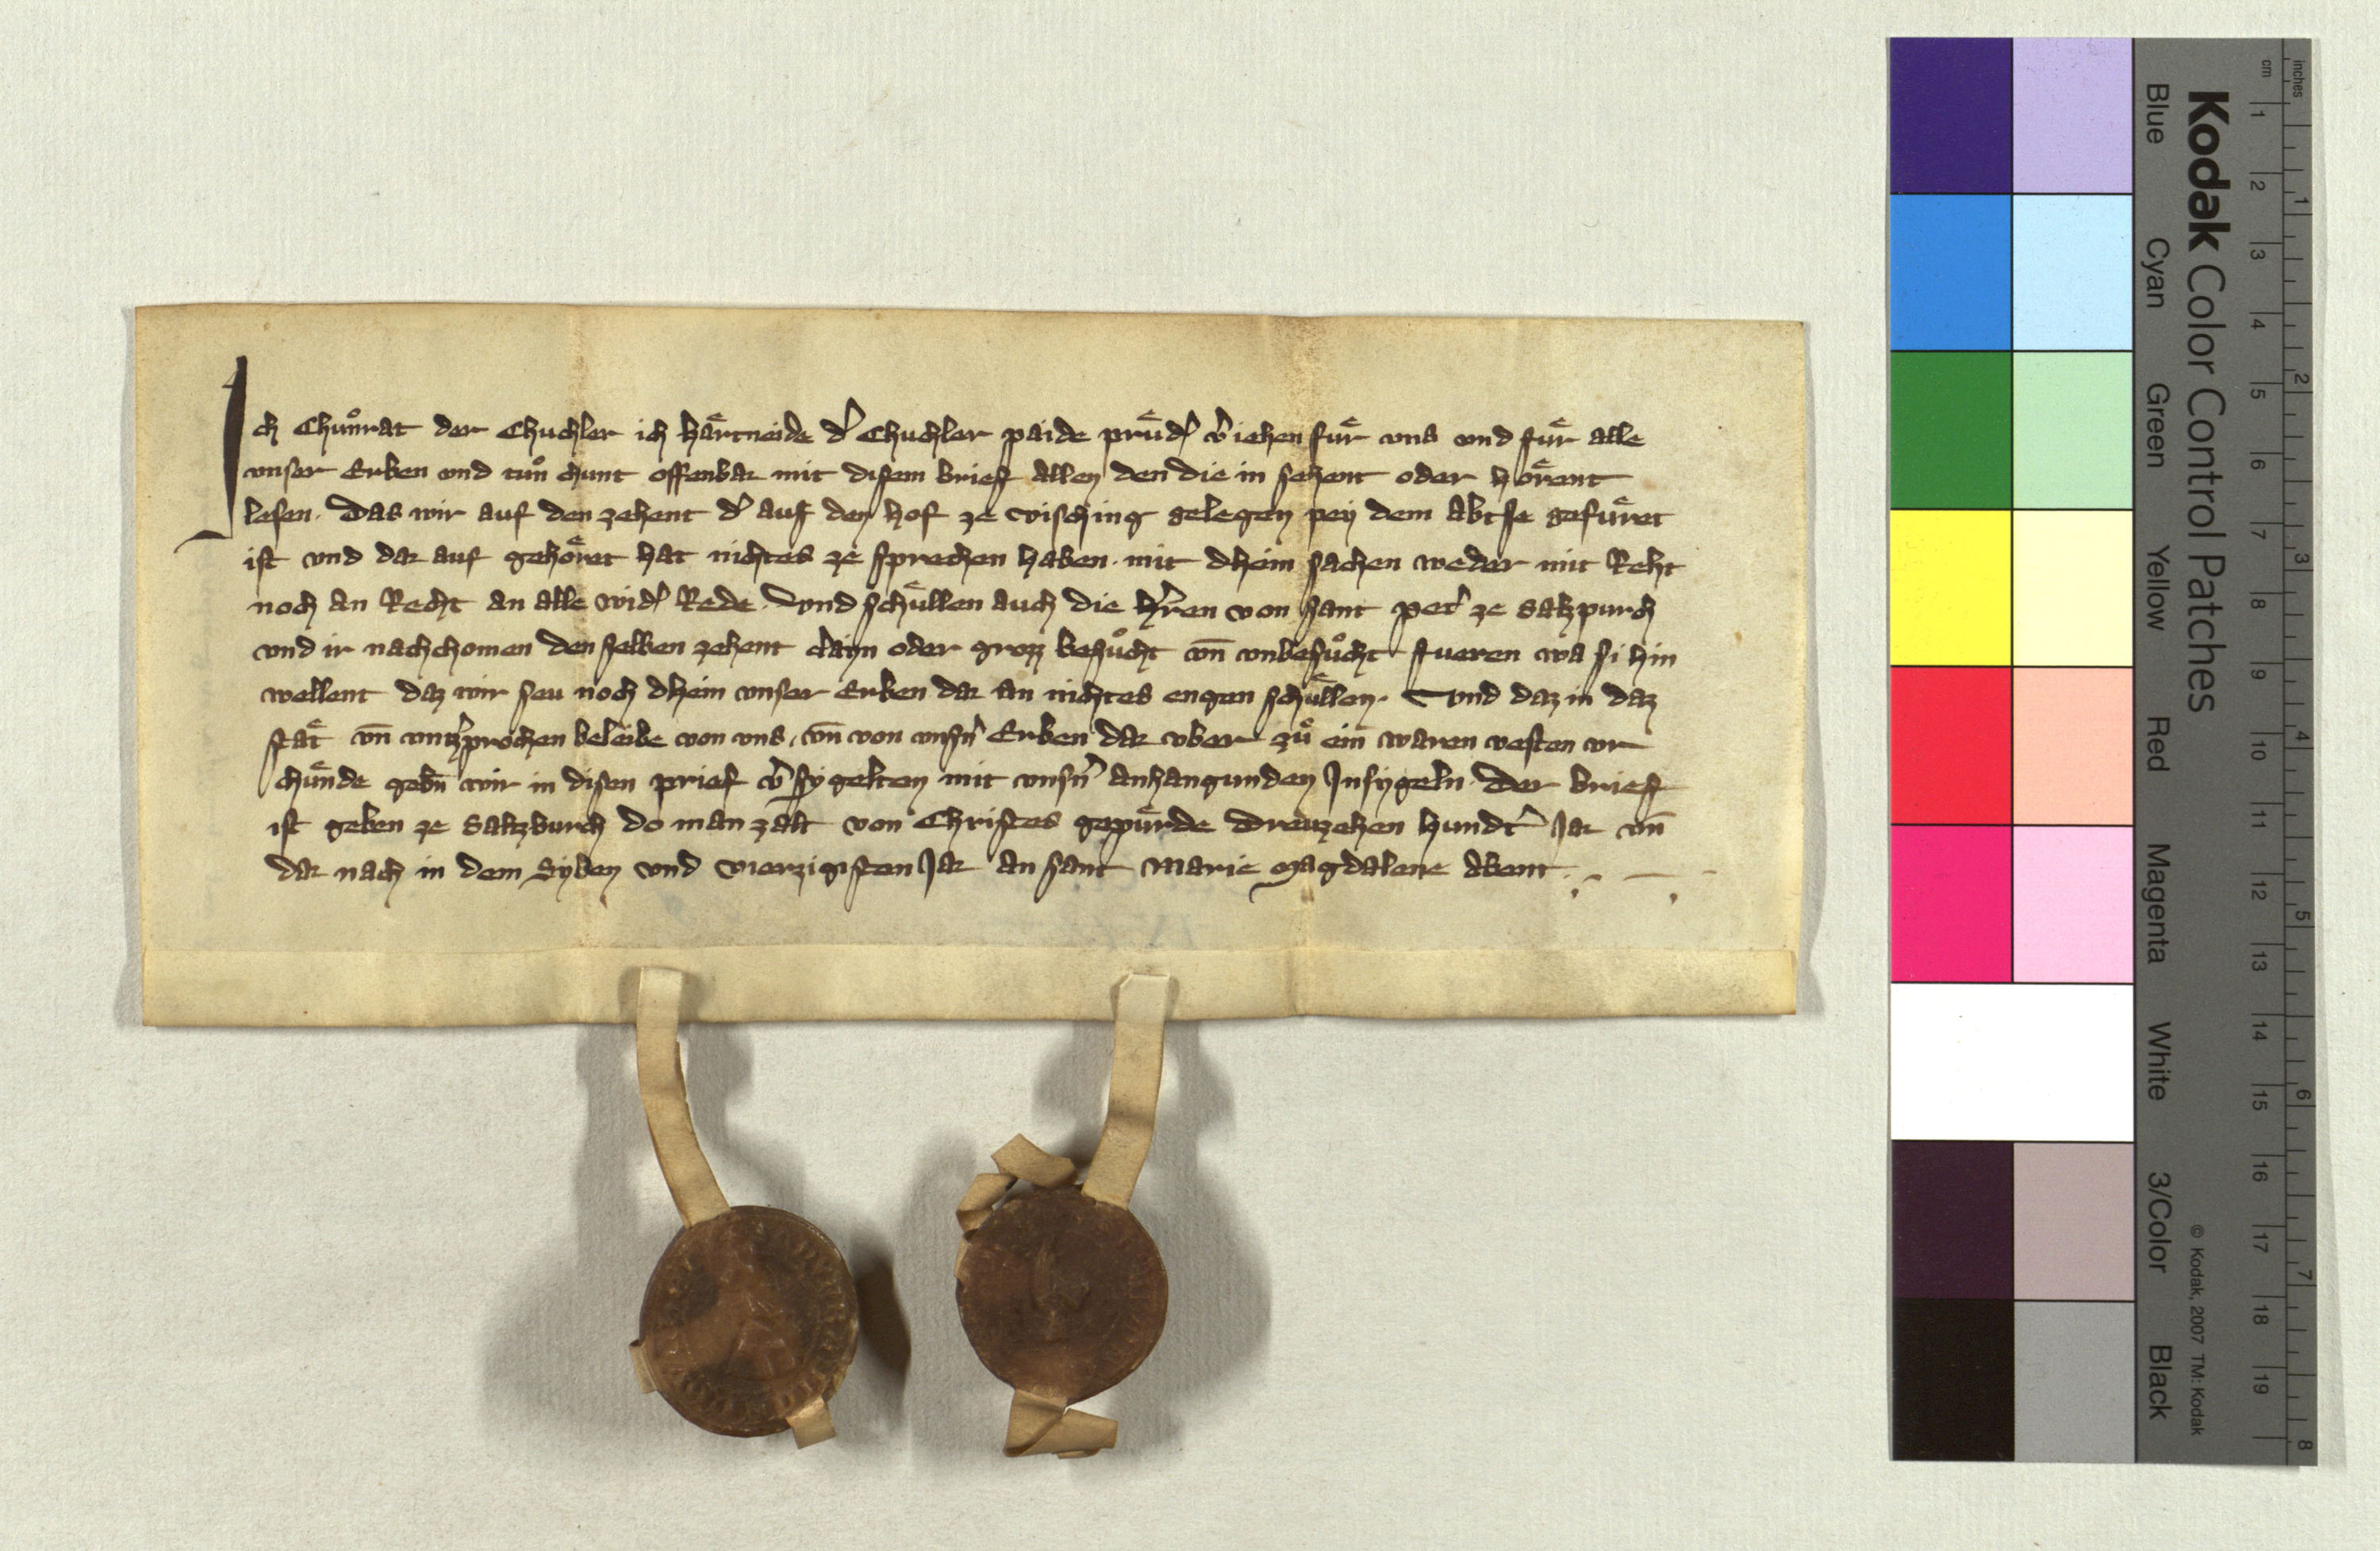 Ich Chunͦrat der Chuchler ich Haͤrtneide d' Chuchler paide pruͤd' v'iehen fuͤr vns vnd fuͤr alle
vnser Erben vnd tunͦ chunt offenbar mit disem brief allen den die in sehent oder hoͤrent
lesen. Das wir auf den zehent d' auf den hof ze visching gelegen pey dem Abtse gefuͤret
ist vnd dar auf gehoͤret hat nichtes ze sprechen haben. mit dhein sachen weder mit Reht
noch an Recht an alle wid' Rede. Vnd schuͤllen auch die h'ren von sant pet' ze Saltzpurch
vnd ir nachchomen den selben zehent chlayn oder grozz besuͦcht vn̄ vnbesuͦcht fueren wa si hin
wellent daz wir seu noch dhein vnser Erben dar an nichtes engen schuͤllen. Vnd daz in daz
staͤt vn̄ vntz'prochen beleibe von vns, vn̄ von vnsn' Erben dar vber zuͦ ein waren vesten vr
chuͤnde gebn̄ wir in disen prief v'sygelten mit vnsn' anhangunden Insygeln. Der brief
ist geben ze Saltzburch do man zalt von Christes gepuͤrde Dreutzehen hundt' Jar vn̄
dar nach in dem Syben vnd vierzigisten Jar an sant Marie Magdalene Abent.
Kodak Color Control Patches
Blue Cyan Green Yellow Red Magenta White 3/Color Black
© Kodak, 2007 TM: Kodak
inches 1 2 3 4 5 6 7 8
cm 1 2 3 4 5 6 7 8 9 10 11 12 13 14 15 16 17 18 19